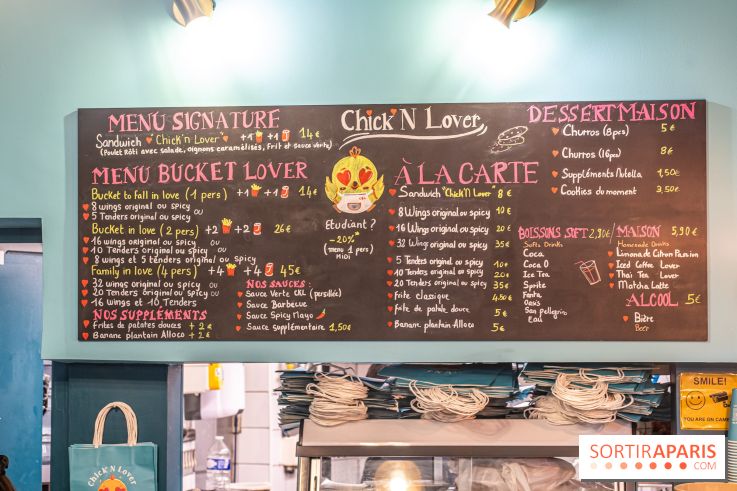 MENU SIGNATURE
Sandwich "Chick'n Lover" +1 +1 14€
(Poulet Rôti avec salade, oignons caramélisés, Frit et sauce verte)
MENU BUCKET LOVER
Bucket to fall in love (1 pers) +1 +1 14€
8 wings original ou spicy ou
5 Tenders original ou spicy
Bucket in love (2 pers) +2 +2 26€
16 wings original ou spicy ou
10 Tenders original ou spicy ou
8 wings et 5 tenders original ou spicy
Family in love (4 pers) +4 +4 45€
32 wings original ou spicy ou
20 Tenders original ou spicy ou
16 wings et 10 Tenders
NOS SUPPLÉMENTS
Frites de patates douces + 2€
Banane plantain Alloco + 2€
NOS SAUCES:
Sauce Verte CNL (persillée)
Sauce Barbecue
Sauce Spicy Mayo
Sauce supplémentaire 1,50€
Chick'N Lover
Etudiant ?
-20%*
(menu 1 pers)
MIDI
À LA CARTE
Sandwich "Chick'N Lover" 8€
8 Wings original ou spicy 10€
16 Wings original ou spicy 20€
32 Wings original ou spicy 35€
5 Tenders original ou spicy 10€
10 Tenders original ou spicy 20€
20 Tenders original ou spicy 35€
Frite classique 4,50€
Frite de patate douce 5€
Banane plantain Alloco 5€
DESSERT MAISON
Churros (8pcs) 5€
Churros (16pcs) 8€
Suppléments Nutella 1,50€
Cookies du moment 3,50€
BOISSONS SOFT 2,90€
Softs Drinks
Coca
Coca 0
Ice Tea
Sprite
Fanta
Oasis
San pellegrino
Eau
/ MAISON 5,90€
Homemade Drinks
Limonade Citron Passion
Iced Coffee Lover
Thai Tea Lover
Matcha Latte
ALCOOL 5€
Bière
Beer
SMILE!
YOU ARE ON CAM
Chick'N Lover
SORTIRAPARIS
.COM